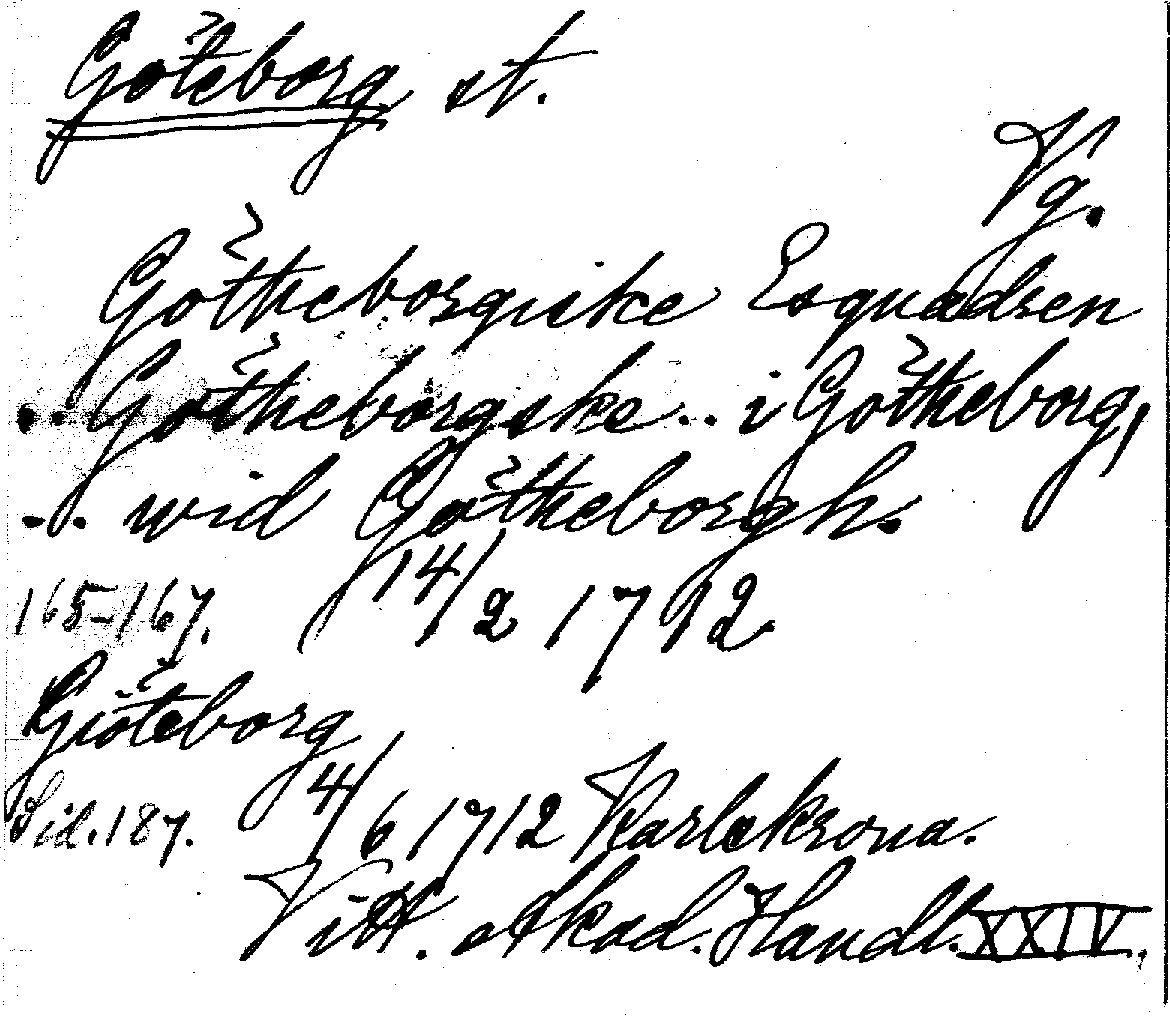 Göteborg st.
Vg.
Götheborgiske Esquadren
.. Götheborgske .. i Götheborg,
... wid Götheborgh.
165-167. 14/2 1712.
Giöteborg
Sid. 187. 4/6 1712 Karlskrona.
Vitt. Akad. Handl. XXIV.